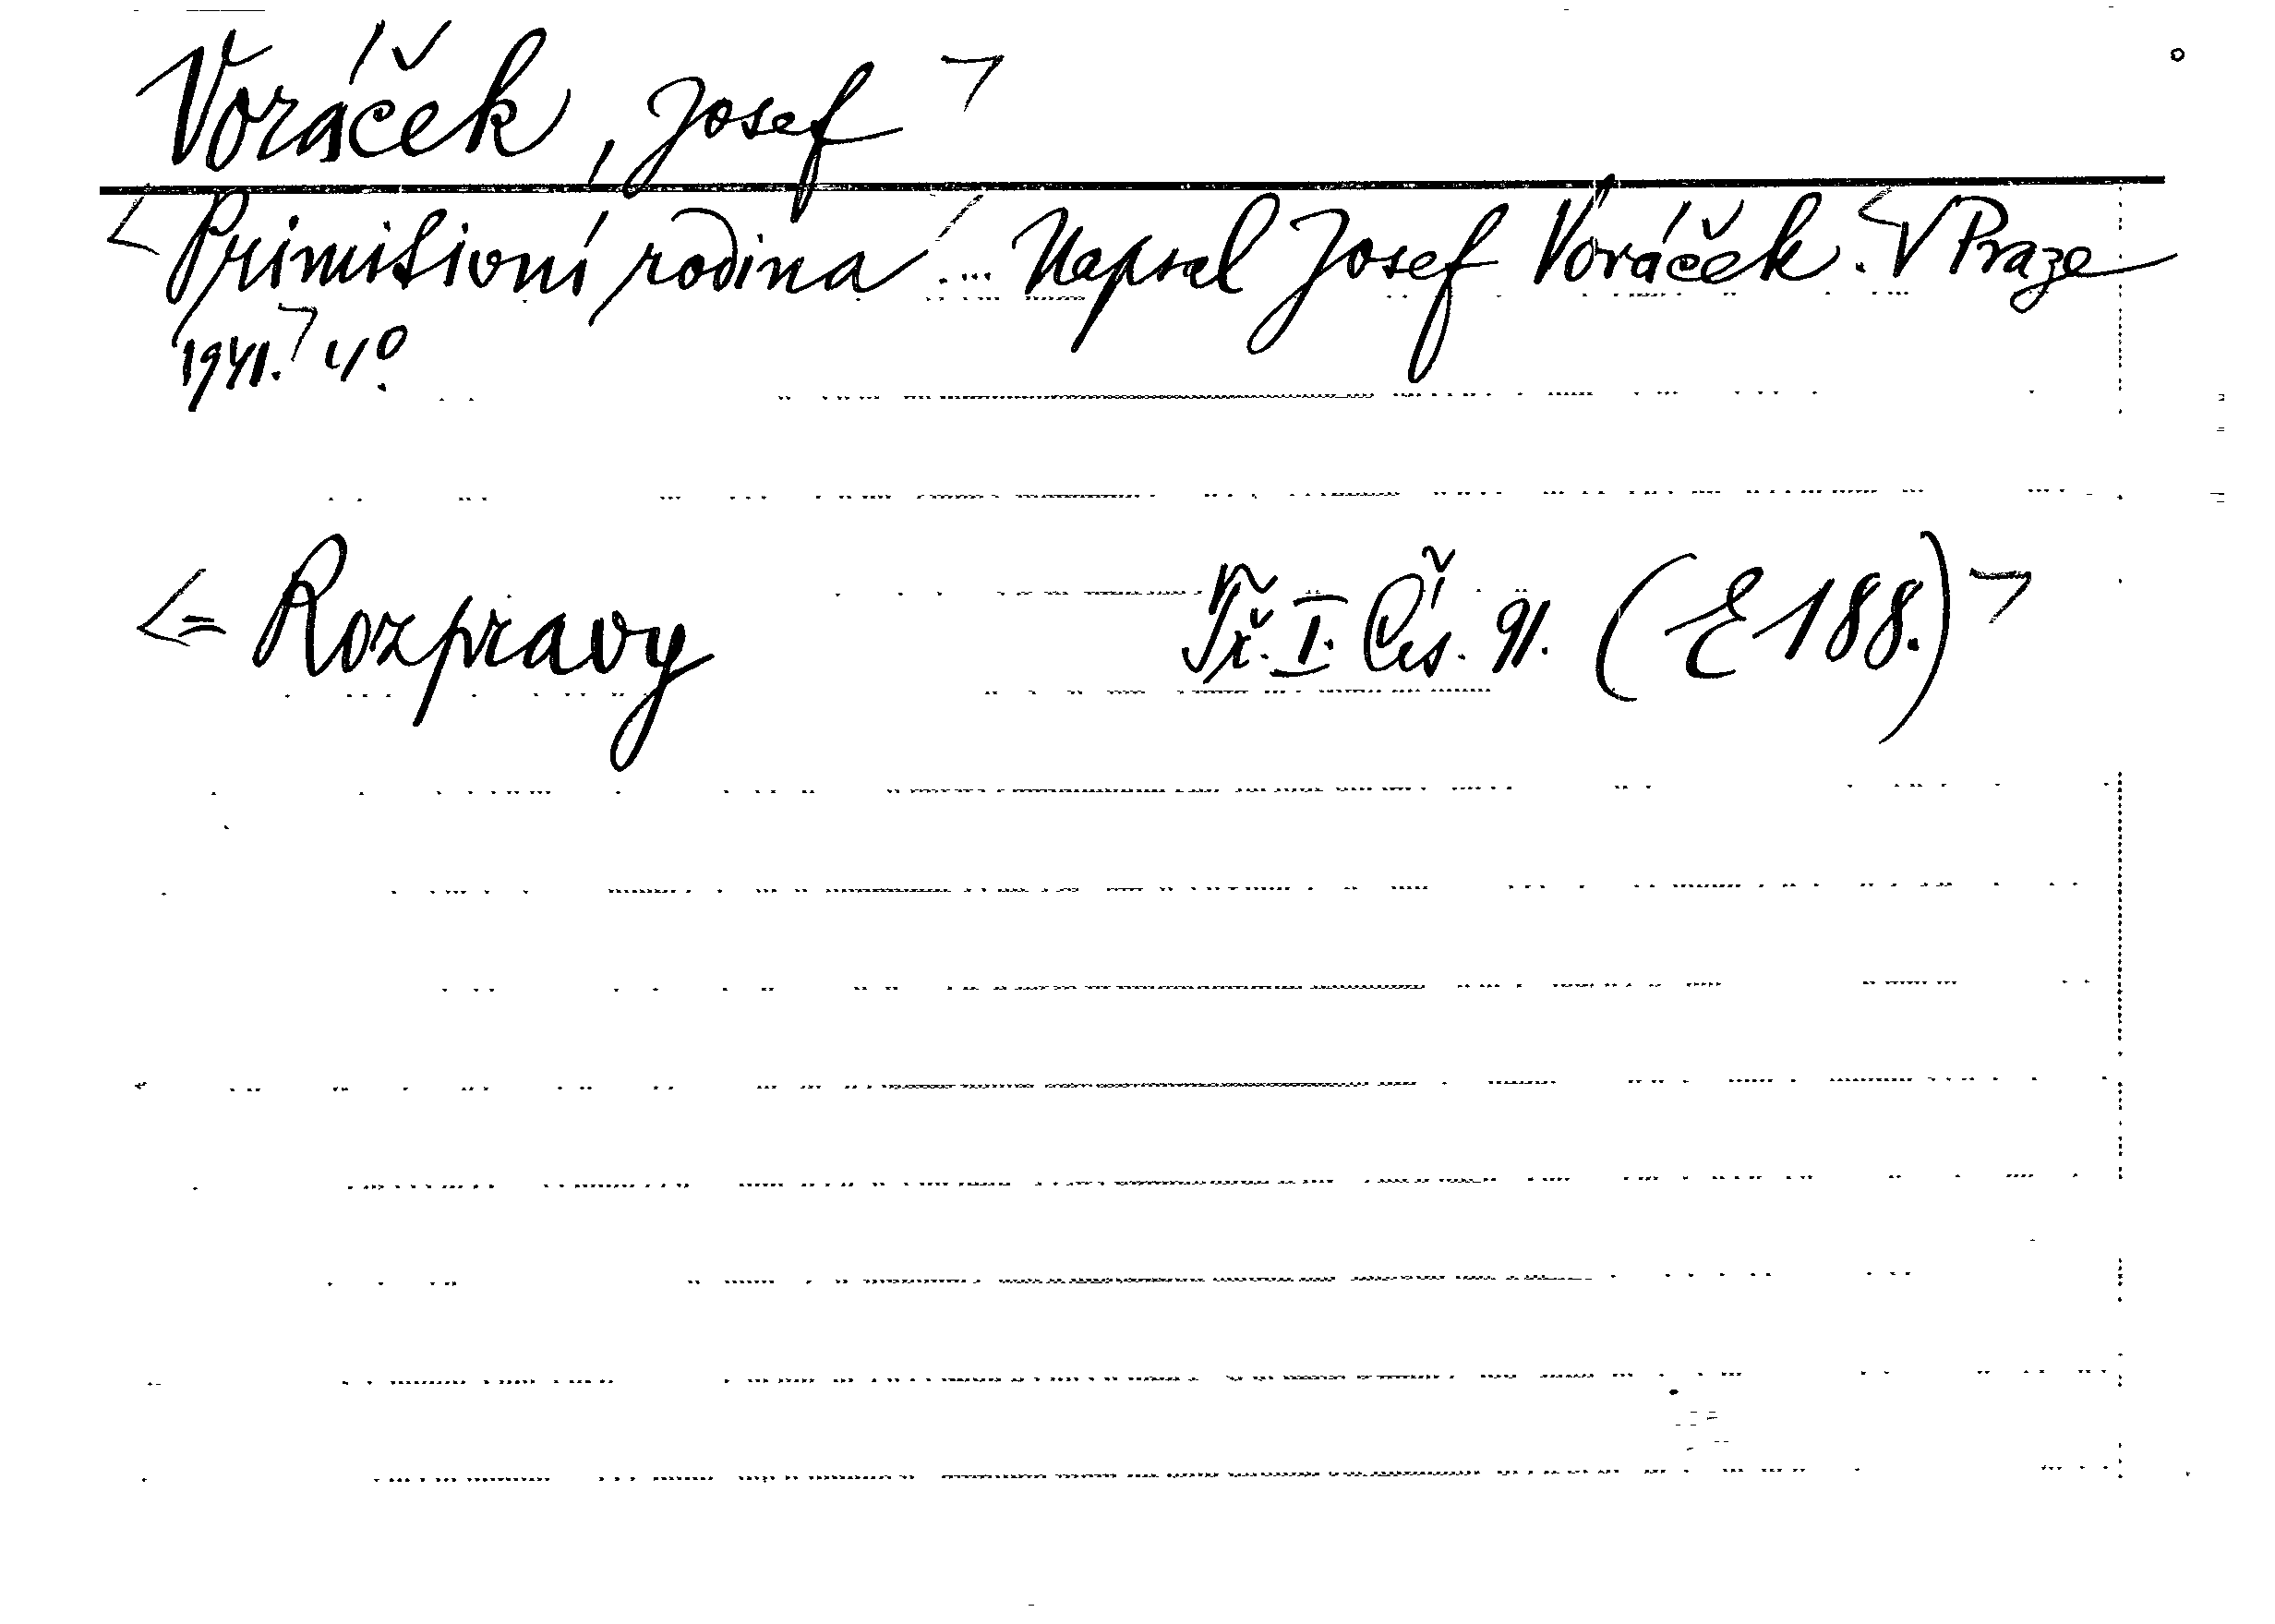 Voráček, Josef
Primitivní rodina ... Napsal Josef Voráček. V Praze
1941. 4°.
= Rozpravy Tř. I. Čís. 91. (E 188.)